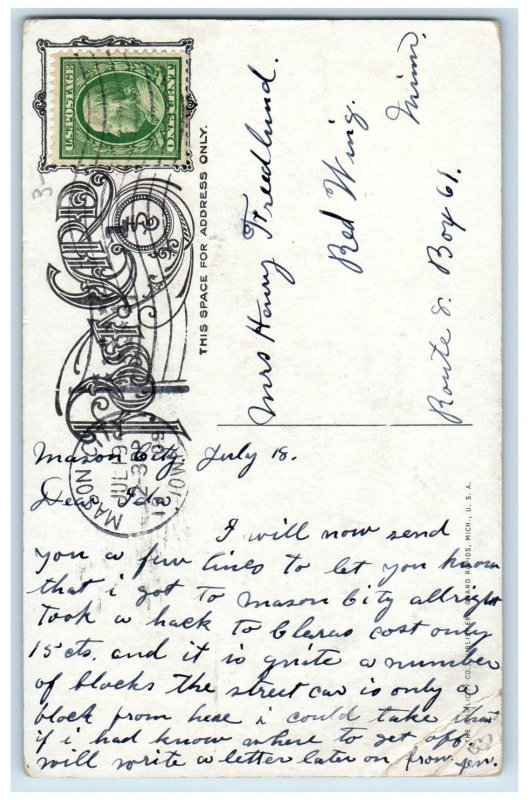 U.S. POSTAGE
ONE CENT
POST CARD
THIS SPACE FOR ADDRESS ONLY.
Mrs Henry Freedlund.
Red Wing.
Minn.
Route 2. Box 61.
MASON CITY
JUL 19
IOWA
Mason City. July 18.
Dear Ida
I will now send
you a few lines to let you know
that i got to Mason City allright
Took a hack to Claras cost only
15 cts. and it is quite a number
of blocks the street car is only a
block from here i could take that
if i had know where to get off.
will write a letter later on from
GRAND RAPIDS, MICH., U. S. A.
3-